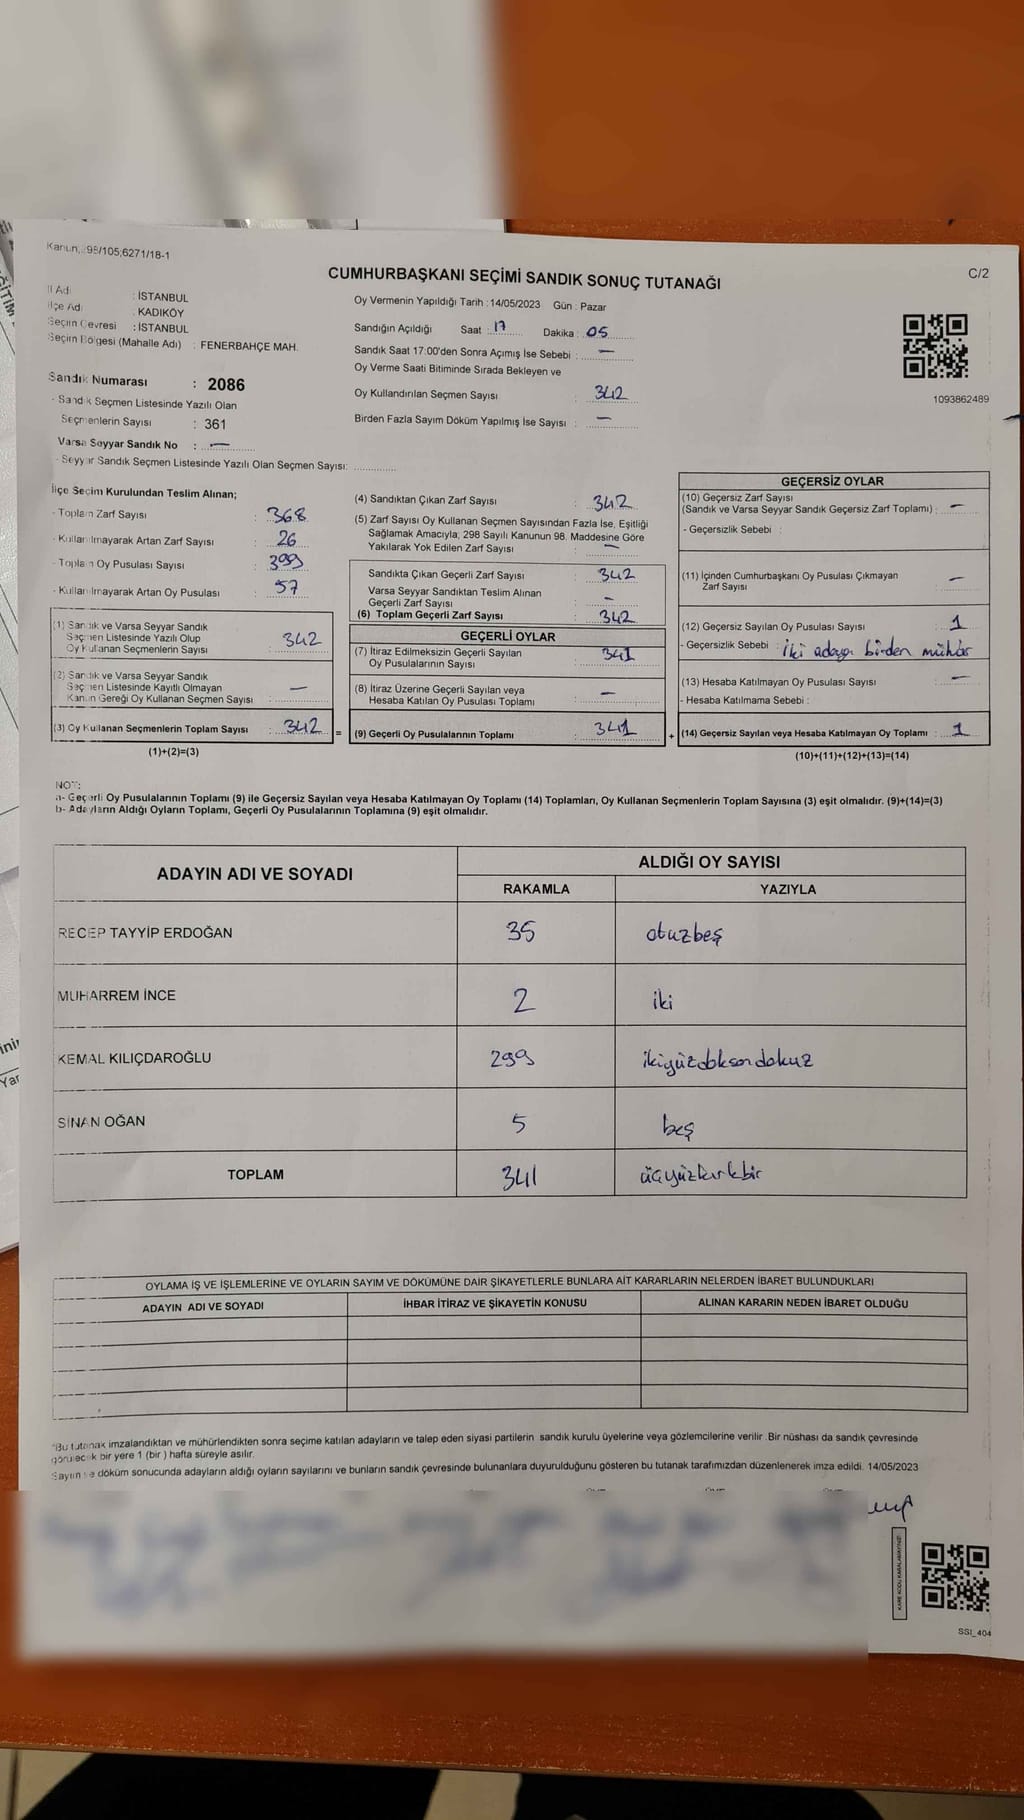 Kanun, 298/105;6271/18-1
C/2
CUMHURBAŞKANI SEÇİMİ SANDIK SONUÇ TUTANAĞI
İl Adı : İSTANBUL
İlçe Adı : KADIKÖY
Seçim Çevresi : İSTANBUL
Seçim Bölgesi (Mahalle Adı) : FENERBAHÇE MAH.
Sandık Numarası : 2086
- Sandık Seçmen Listesinde Yazılı Olan
Seçmenlerin Sayısı : 361
Varsa Seyyar Sandık No : —
- Seyyar Sandık Seçmen Listesinde Yazılı Olan Seçmen Sayısı: ..............
Oy Vermenin Yapıldığı Tarih : 14/05/2023 Gün : Pazar
Sandığın Açıldığı Saat : 17 Dakika : 05
Sandık Saat 17:00'den Sonra Açımış İse Sebebi : —
Oy Verme Saati Bitiminde Sırada Bekleyen ve
Oy Kullandırılan Seçmen Sayısı : 342
Birden Fazla Sayım Döküm Yapılmış İse Sayısı : —
1093862489
İlçe Seçim Kurulundan Teslim Alınan;
- Toplam Zarf Sayısı : 368
- Kullanılmayarak Artan Zarf Sayısı : 26
- Toplam Oy Pusulası Sayısı : 399
- Kullanılmayarak Artan Oy Pusulası : 57
(1) Sandık ve Varsa Seyyar Sandık
Seçmen Listesinde Yazılı Olup
Oy Kullanan Seçmenlerin Sayısı : 342
(2) Sandık ve Varsa Seyyar Sandık
Seçmen Listesinde Kayıtlı Olmayan
Kanun Gereği Oy Kullanan Seçmen Sayısı : —
(3) Oy Kullanan Seçmenlerin Toplam Sayısı : 342 =
(1)+(2)=(3)
(4) Sandıktan Çıkan Zarf Sayısı : 342
(5) Zarf Sayısı Oy Kullanan Seçmen Sayısından Fazla İse, Eşitliği
Sağlamak Amacıyla; 298 Sayılı Kanunun 98. Maddesine Göre
Yakılarak Yok Edilen Zarf Sayısı : —
Sandıkta Çıkan Geçerli Zarf Sayısı : 342
Varsa Seyyar Sandıktan Teslim Alınan
Geçerli Zarf Sayısı : —
(6) Toplam Geçerli Zarf Sayısı : 342
GEÇERLİ OYLAR
(7) İtiraz Edilmeksizin Geçerli Sayılan
Oy Pusulalarının Sayısı : 341
(8) İtiraz Üzerine Geçerli Sayılan veya
Hesaba Katılan Oy Pusulası Toplamı : —
(9) Geçerli Oy Pusulalarının Toplamı : 341 +
GEÇERSİZ OYLAR
(10) Geçersiz Zarf Sayısı
(Sandık ve Varsa Seyyar Sandık Geçersiz Zarf Toplamı) : —
- Geçersizlik Sebebi :
(11) İçinden Cumhurbaşkanı Oy Pusulası Çıkmayan
Zarf Sayısı : —
(12) Geçersiz Sayılan Oy Pusulası Sayısı : 1
- Geçersizlik Sebebi : iki adaya birden mühür
(13) Hesaba Katılmayan Oy Pusulası Sayısı : —
- Hesaba Katılmama Sebebi :
(14) Geçersiz Sayılan veya Hesaba Katılmayan Oy Toplamı : 1
(10)+(11)+(12)+(13)=(14)
NOT:
a- Geçerli Oy Pusulalarının Toplamı (9) ile Geçersiz Sayılan veya Hesaba Katılmayan Oy Toplamı (14) Toplamları, Oy Kullanan Seçmenlerin Toplam Sayısına (3) eşit olmalıdır. (9)+(14)=(3)
b- Adayların Aldığı Oyların Toplamı, Geçerli Oy Pusulalarının Toplamına (9) eşit olmalıdır.
ADAYIN ADI VE SOYADI ALDIĞI OY SAYISI
RAKAMLA YAZIYLA
RECEP TAYYİP ERDOĞAN 35 otuzbeş
MUHARREM İNCE 2 iki
KEMAL KILIÇDAROĞLU 299 ikiyüzdoksandokuz
SİNAN OĞAN 5 beş
TOPLAM 341 üçyüzkırkbir
OYLAMA İŞ VE İŞLEMLERİNE VE OYLARIN SAYIM VE DÖKÜMÜNE DAİR ŞİKAYETLERLE BUNLARA AİT KARARLARIN NELERDEN İBARET BULUNDUKLARI
ADAYIN ADI VE SOYADI İHBAR İTİRAZ VE ŞİKAYETİN KONUSU ALINAN KARARIN NEDEN İBARET OLDUĞU
"Bu tutanak imzalandıktan ve mühürlendikten sonra seçime katılan adayların ve talep eden siyasi partilerin sandık kurulu üyelerine veya gözlemcilerine verilir. Bir nüshası da sandık çevresinde
görülecek bir yere 1 (bir) hafta süreyle asılır.
Sayım ve döküm sonucunda adayların aldığı oyların sayılarını ve bunların sandık çevresinde bulunanlara duyurulduğunu gösteren bu tutanak tarafımızdan düzenlenerek imza edildi. 14/05/2023
KARE KODU KARALAMAYINIZ!
SSI_404